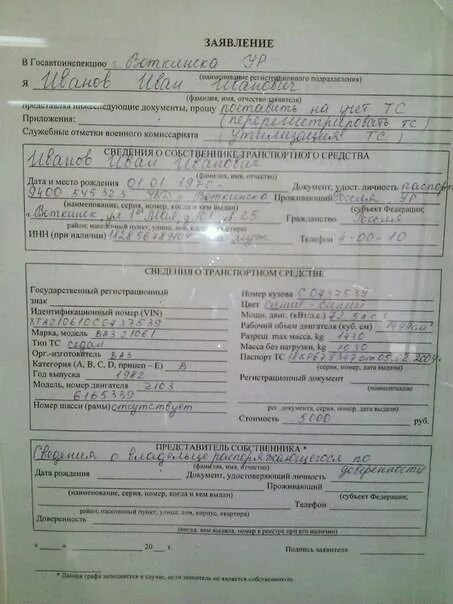 ЗАЯВЛЕНИЕ
В Госавтоинспекцию г. Воткинска УР
(наименование регистрационного подразделения)
Я Иванов Иван Иванович
(фамилия, имя, отчество заявителя)
представляя нижеследующие документы, прошу поставить на учет ТС
Приложения: (перерегистрировать ТС)
Служебные отметки военного комиссариата (утилизация ТС)
СВЕДЕНИЯ О СОБСТВЕННИКЕ ТРАНСПОРТНОГО СРЕДСТВА
Иванов Иван Иванович
(фамилия, имя, отчество)
Дата и место рождения 01.01.1970г. Документ, удост. личность паспорт
9400 545323 Воткинска Проживающий Россия УР
(наименование, серия, номер, когда и кем выдан) (субъект Федерации;
г. Воткинск ул 1 Мая д 101 25 Гражданство Россия
район, населенный пункт, улица, дом, корпус, квартира)
ИНН (при наличии) Пол муж. Телефон 4-00-10
СВЕДЕНИЯ О ТРАНСПОРТНОМ СРЕДСТВЕ
Государственный регистрационный
знак
Идентификационный номер (VIN)
XTA210610C0737539
Марка, модель ВАЗ 21061
Тип ТС седан
Орг.-изготовитель ВАЗ
Категория (А, В, С, D, прицеп – Е) В
Год выпуска 1982
Модель, номер двигателя 2103
6165339
Номер шасси (рамы) отсутствует
Номер кузова С0737539
Цвет Синий - синий
Мощн. двиг. (кВт/л.с.)
Рабочий объем двигателя (куб. см)
Разреш. max масса, кг 1430
Масса без нагрузки, кг
Паспорт ТС
(серия, номер, дата выдачи)
Регистрационный документ
(наименование
рег. документа, серия, номер, дата выдачи)
Стоимость 5000 руб.
ПРЕДСТАВИТЕЛЬ СОБСТВЕННИКА *
Сведения о владельце распоряжающегося по доверенности
(фамилия, имя, отчество)
Дата рождения Документ, удостоверяющий личность
Проживающий
(наименование, серия, номер, когда и кем выдан) (субъект Федерации;
Телефон
район, населенный пункт, улица, дом, корпус, квартира)
Доверенность
(когда, кем выдана, номер в реестре при его наличии)
" " 20 г. Подпись заявителя
* Данная графа заполняется в случае, если заявитель не является собственником.